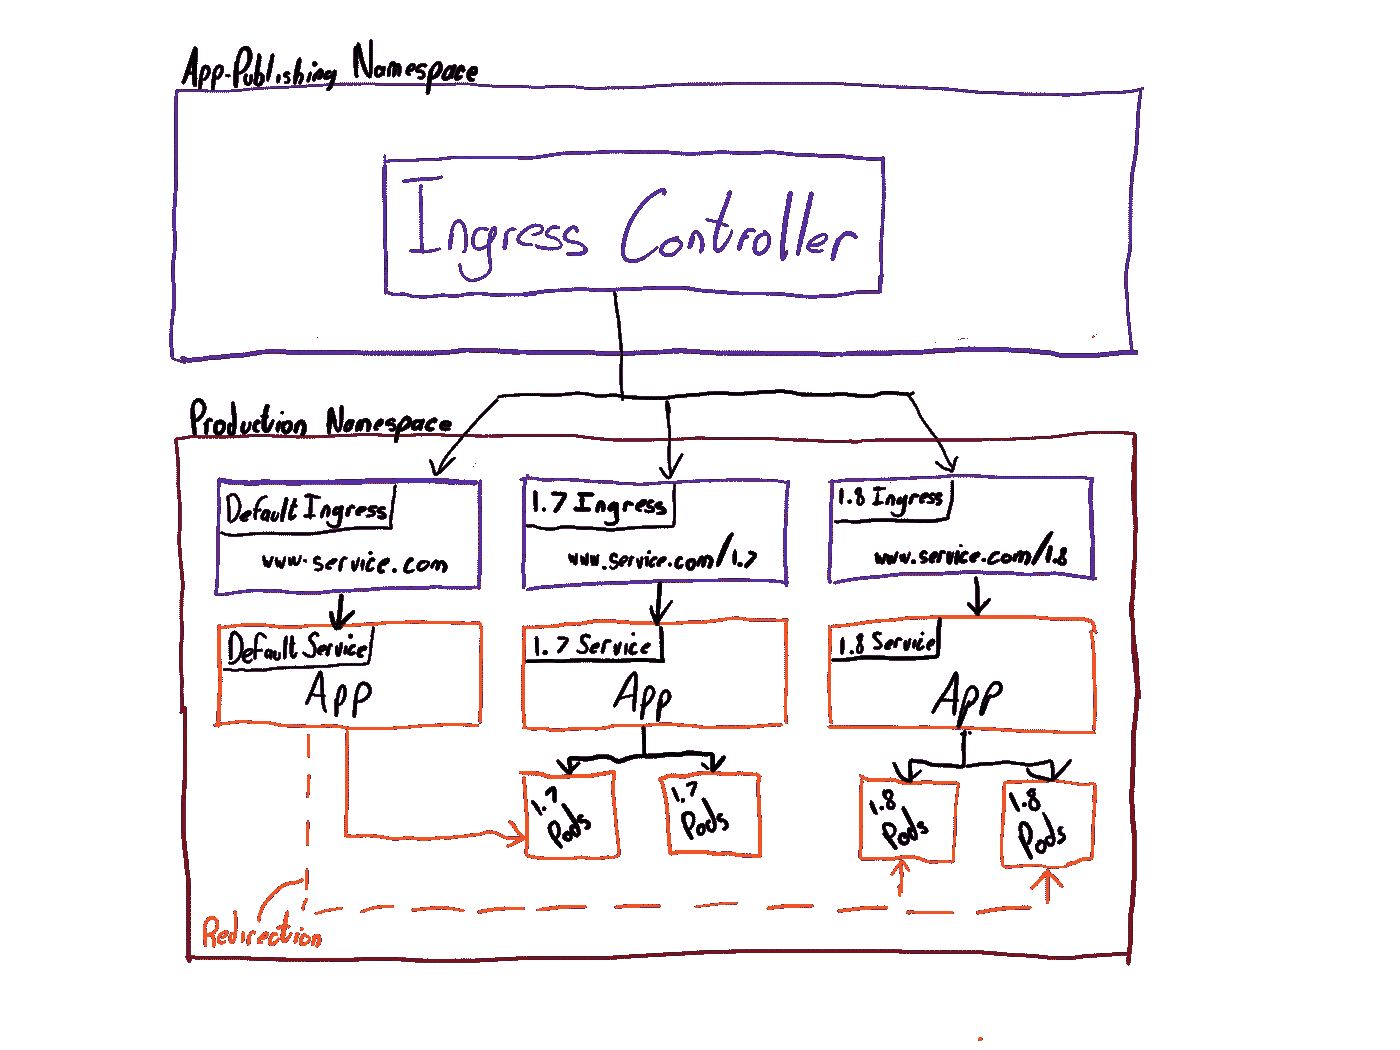 App-Publishing Namespace
Ingress Controller
Production Namespace
Default Ingress
www.service.com
1.7 Ingress
www.service.com/1.7
1.8 Ingress
www.service.com/1.8
Default Service
App
1.7 Service
App
1.8 Service
App
1.7
Pods
1.7
Pods
1.8
Pods
1.8
Pods
Redirection